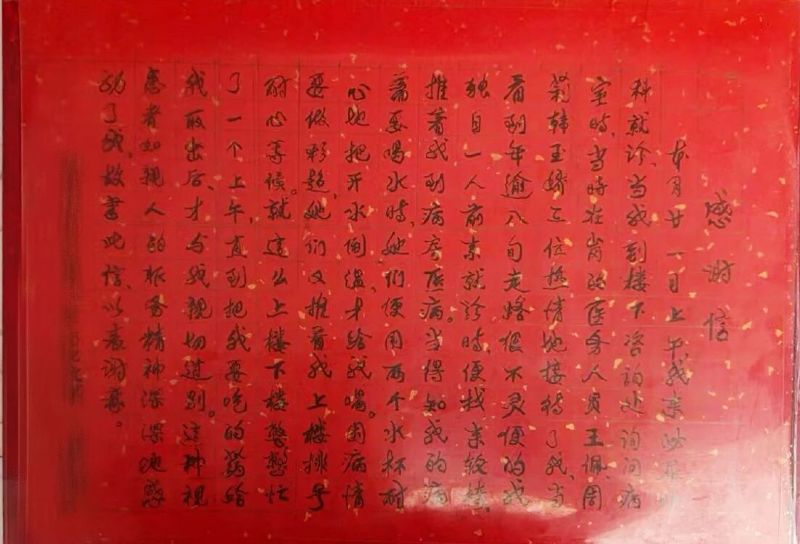 感谢信
本月廿一日上午我来泌尿
科就诊、当我到楼下咨询处询问病
室时,当时在岗的医务人员王佩、周
莉、韩玉娇三位热情地接待了我,当
看到年逾八旬走路很不灵便的我
独自一人前来就诊时,便找来轮椅,
推着我到病房医病。当得知我的病
需要喝水时,她们便用两个水杯耐
心地把开水倒温,才给我喝。因病情
要做彩超,她们又推着我上楼排号
耐心等候。就这么上楼下楼整整忙
了一个上午,直到把我要吃的药给
我取出后,才与我亲切道别。这种视
患者如亲人的服务精神深深地感
动了我,故书此信,以表谢意。